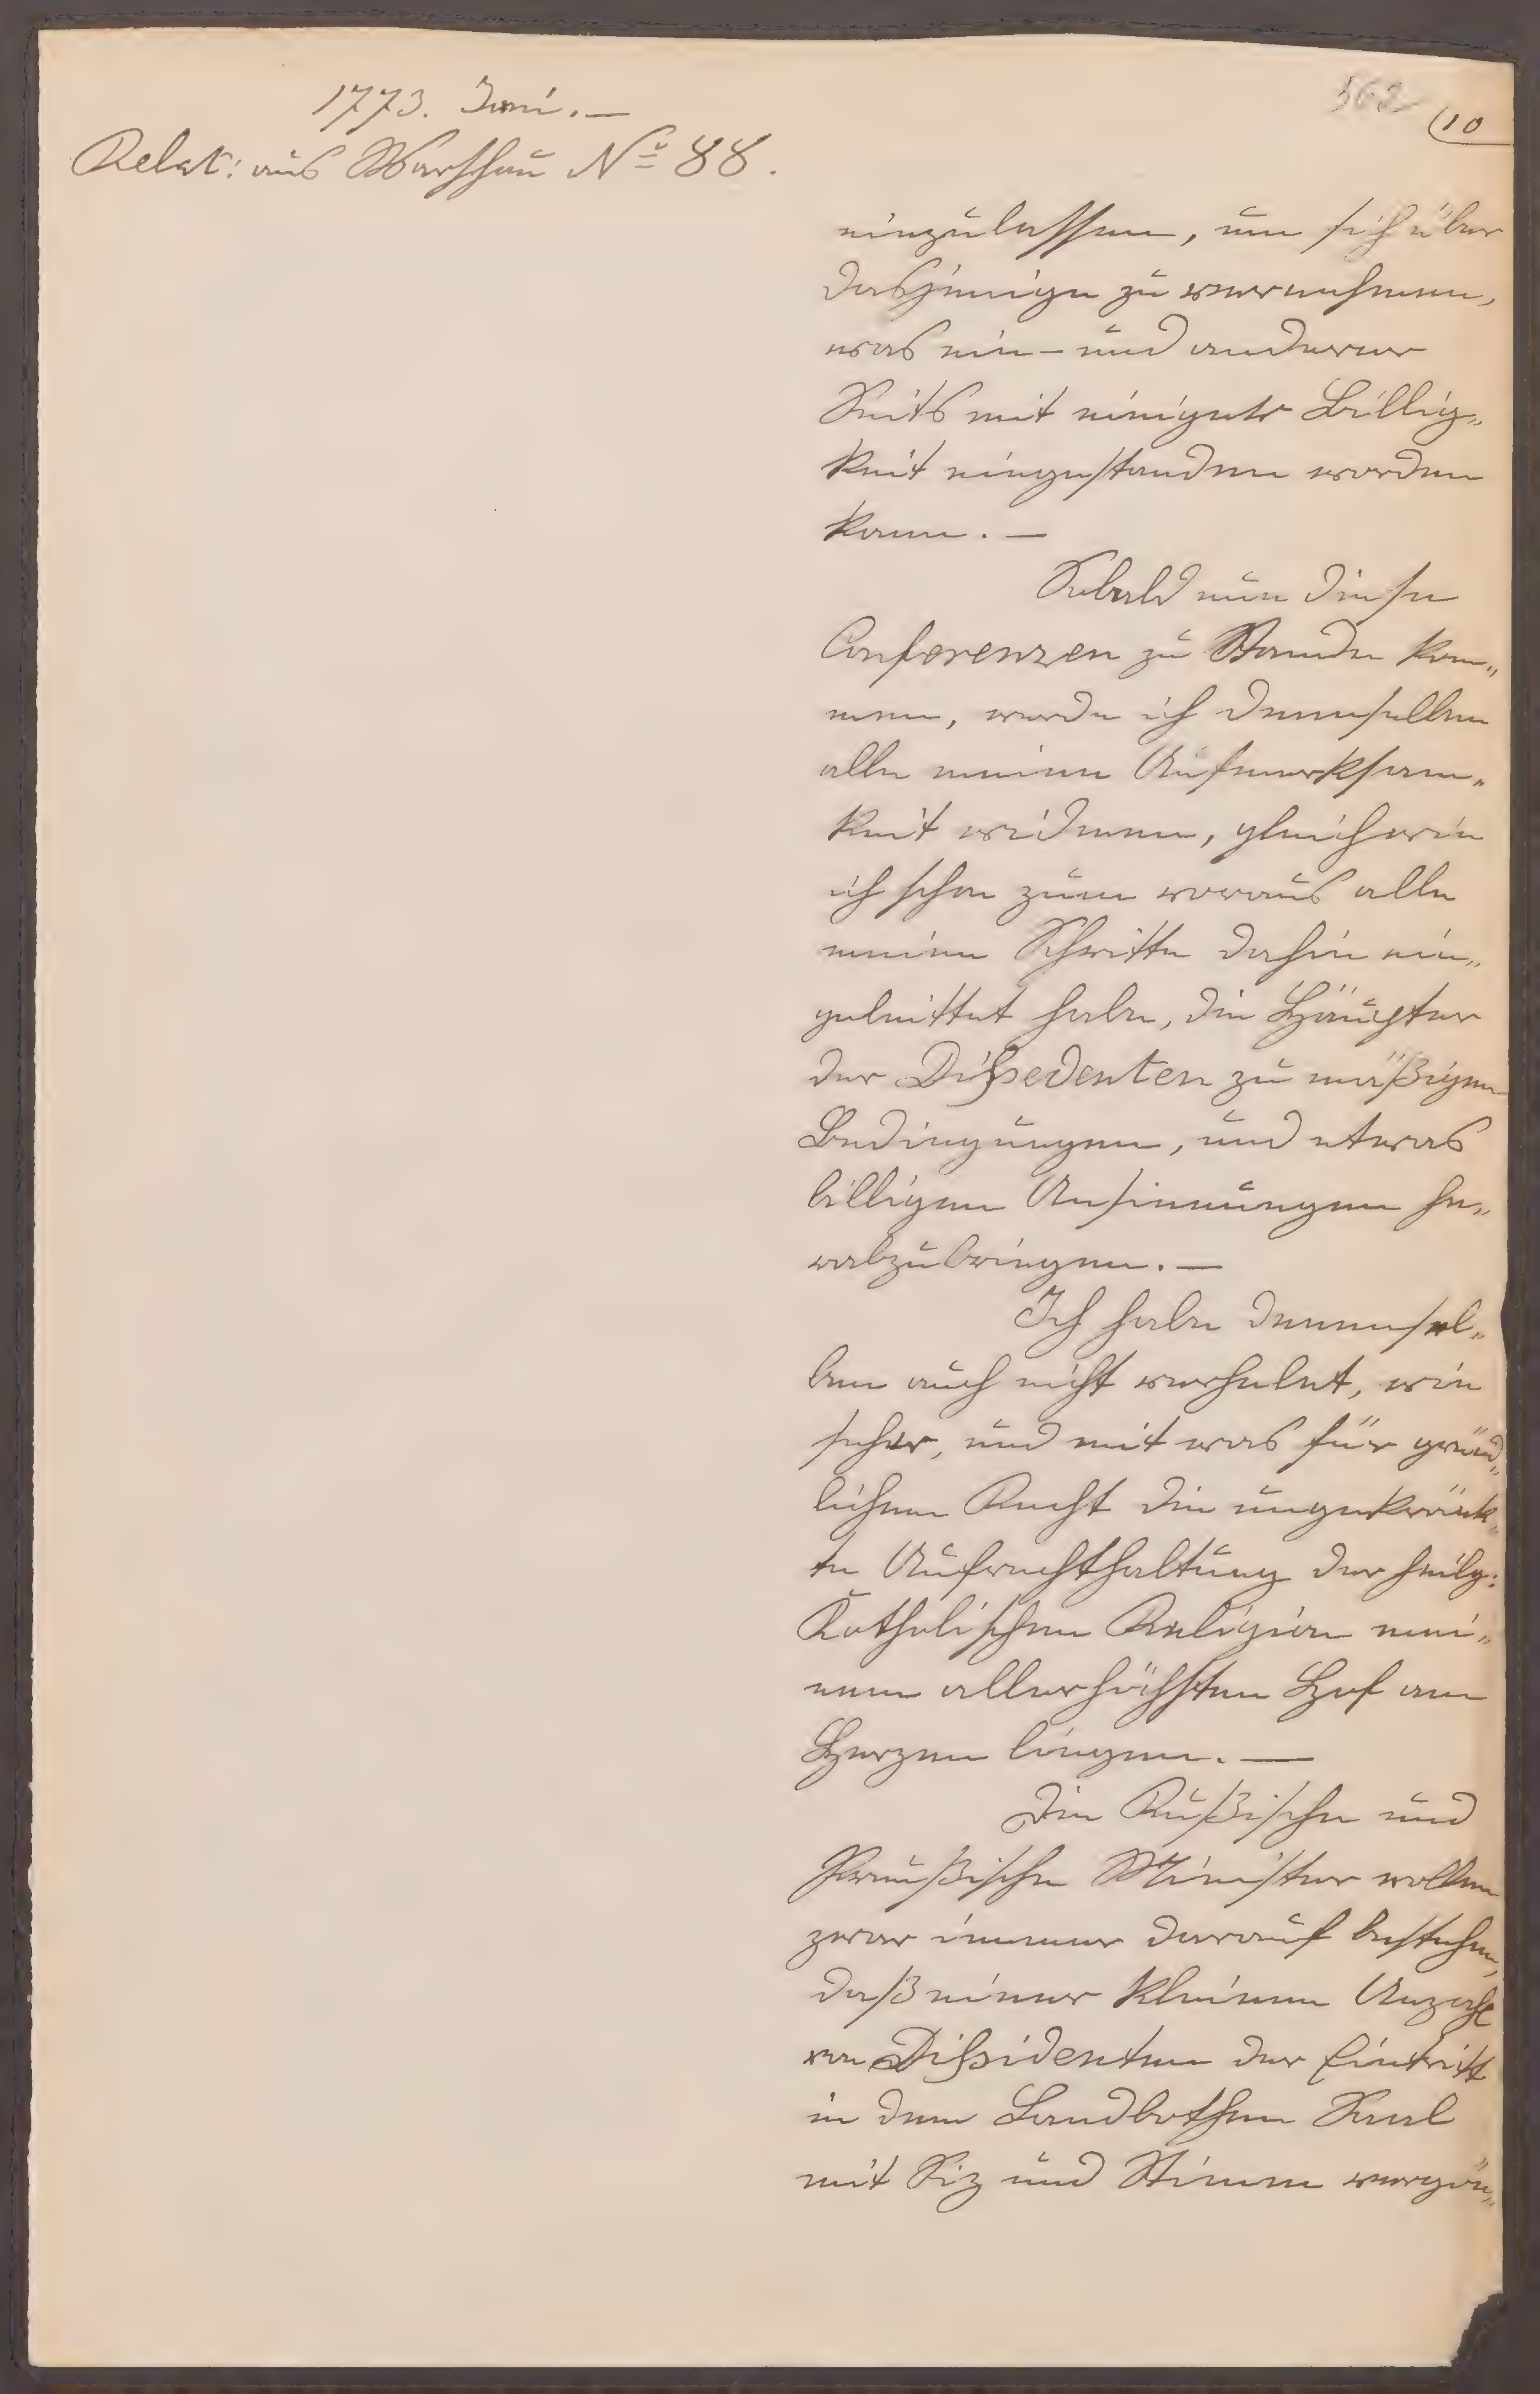 1773. Juni. —
562
10
Relat: aus Warschau No 88.
einzulassen, um sich über
dasjenige zu vernehmen,
was ein- und anderer
Seits mit einiger Billig„
keit eingestanden werden
kann. —
Sobald nun diese
Conferenzen zu Stande kom„
men, werde ich denenselben
alle meine Aufmerksam„
keit widmen, gleichwie
ich schon zum voraus alle
meine Schritte dahin ein„
geleittet habe, die Häupter
der Dißedenten zu mäßigen
Bedingungen, und etwas
billigen Ansinnungen he„
rabzubringen. —
Ich habe denensel„
ben auch nicht verhelet, wie
sehr, und mit was für gründ„
lichen Recht die ungekränk„
te Aufrechthaltung der heilg:
Katholischen Religion mei„
nem allerhöchsten Hof am
Herzen liegen. —
Die Rußische und
Preußische Minister wollen
zwar immer darauf bestehen,
daß einer kleinen Anzahl
von Dißidenten der Eintritt
in dem Landbothen Saal
mit Siz und Stimme vergön„